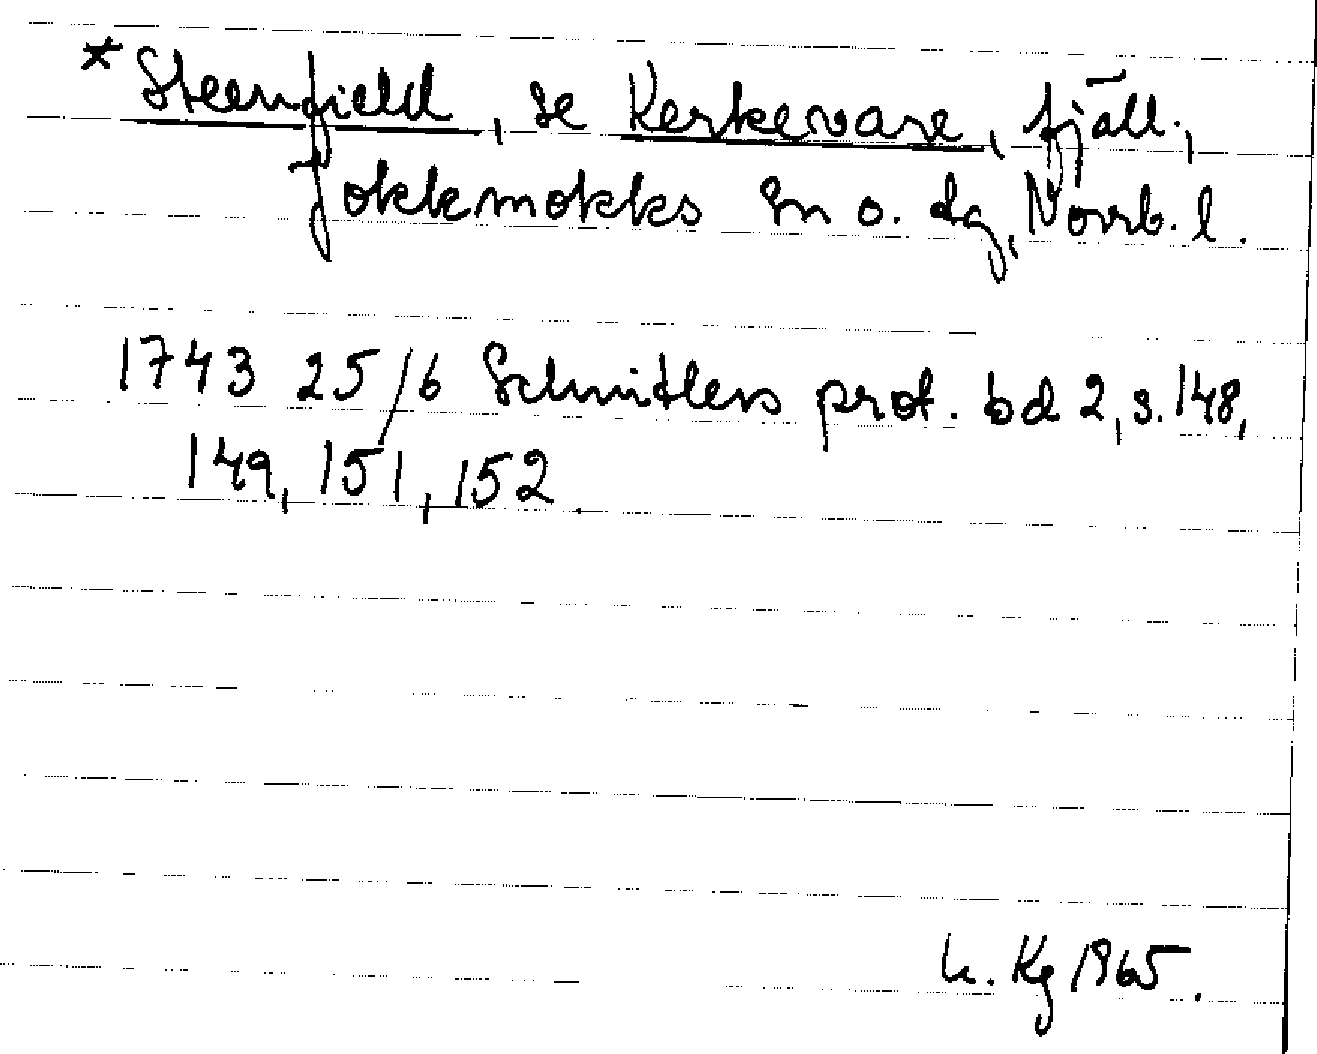 *Steenfield, se Kerkevare, fjäll.,
Jokkmokks sn o. dg, Norrb. l.
1743 25/6 Schnitlers prot. bd 2, s. 148,
149, 151, 152.
h. Kg 1965.